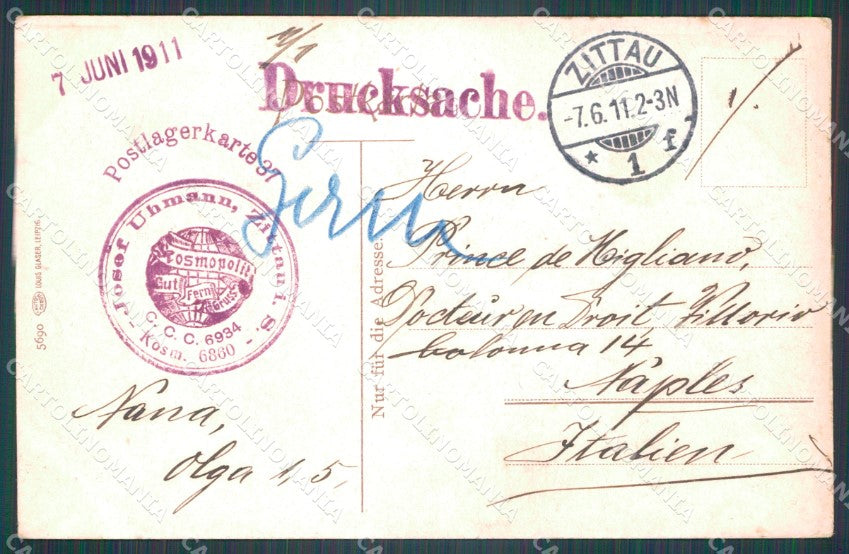 7 JUNI 1911
Drucksache.
ZITTAU
-7.6.11.2-3N
* 1 f
Postlagerkarte 37
Josef Uhmann, Zittau i. S.
Kosmopolit
Gut Fern Gruss
C. C. C. 6934
- Kosm. 6860 -
Herrn
Prince de Migliano,
Docteur en Droit Vittorio
Colonna 14
Naples
Italien
Nana,
Olga 1,5.
Nur für die Adresse.
5690
LOUIS GLASER, LEIPZIG.
CARTOLINOMANIA